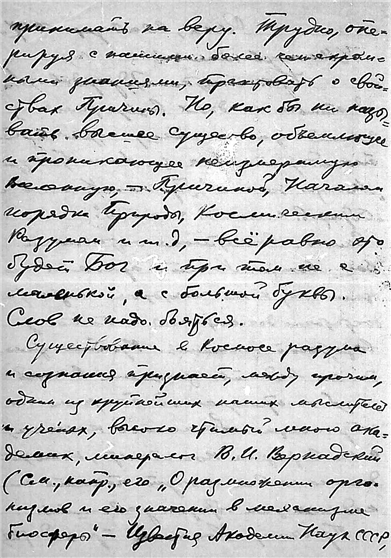 принимать на веру. Трудно, опе-
рируя с нашими более чем скром-
ными знаниями, трактовать о свой-
ствах Причины. Но, как бы ни назы-
вать высшее существо, объемлющее
и проникающее неизмеримую
Вселенную, – Причиной, Началом
порядка Природы, Космическим
Разумом и т.д, – всё равно это
будет Бог и при том не с
маленькой, а с большой буквы.
Слов не надо бояться.
Существование в Космосе разума
и сознания признает, между прочим,
один из крупнейших наших мыслителей
и учёных, высоко чтимый мною ака-
демик, минералог В. И. Вернадский
(См., напр., его „О размножении орга-
низмов и его значении в механизме
биосферы" – Известия Академии Наук СССР,